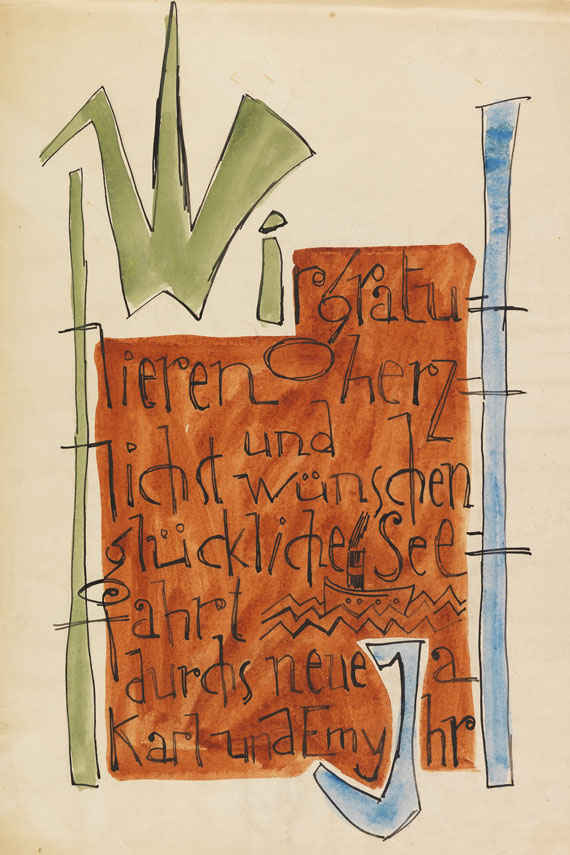 Wir gratu=
lieren herz=
und
lichst wünschen
glückliche See=
fahrt
durchs neue Ja
Karl und Emy hr